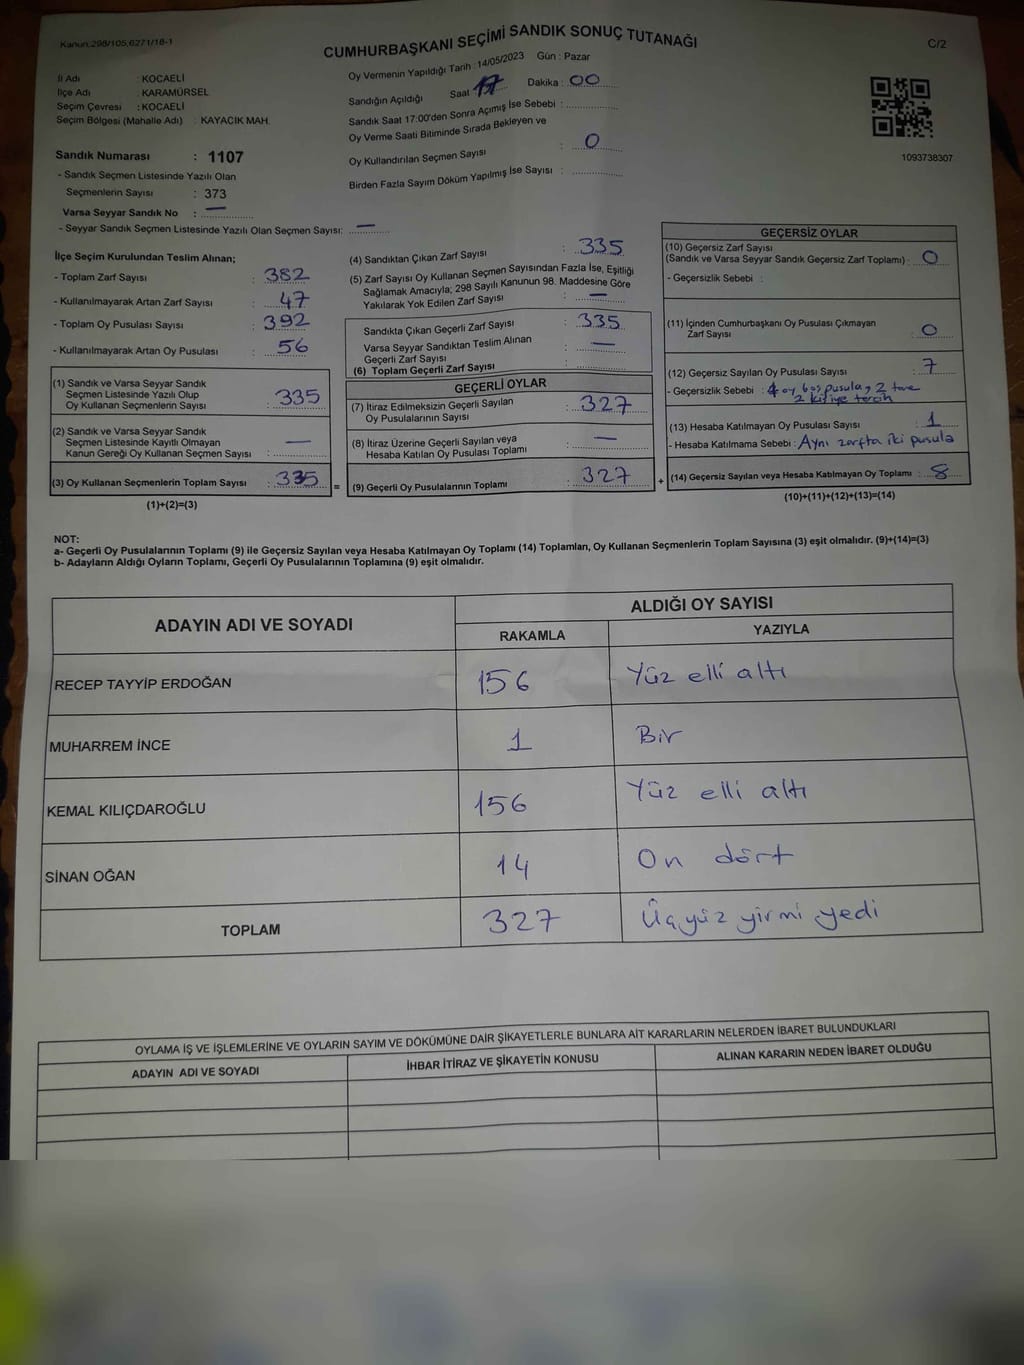 Kanun:298/105,6271/18-1
CUMHURBAŞKANI SEÇİMİ SANDIK SONUÇ TUTANAĞI
C/2
İl Adı : KOCAELİ
İlçe Adı : KARAMÜRSEL
Seçim Çevresi : KOCAELİ
Seçim Bölgesi (Mahalle Adı) : KAYACIK MAH.
Sandık Numarası : 1107
- Sandık Seçmen Listesinde Yazılı Olan
Seçmenlerin Sayısı : 373
Varsa Seyyar Sandık No : —
- Seyyar Sandık Seçmen Listesinde Yazılı Olan Seçmen Sayısı: —
Oy Vermenin Yapıldığı Tarih : 14/05/2023 Gün : Pazar
Sandığın Açıldığı Saat 17 Dakika : 00
Sandık Saat 17:00'den Sonra Açımış İse Sebebi :
Oy Verme Saati Bitiminde Sırada Bekleyen ve
Oy Kullandırılan Seçmen Sayısı : 0
Birden Fazla Sayım Döküm Yapılmış İse Sayısı :
1093738307
İlçe Seçim Kurulundan Teslim Alınan;
- Toplam Zarf Sayısı : 382
- Kullanılmayarak Artan Zarf Sayısı : 47
- Toplam Oy Pusulası Sayısı : 392
- Kullanılmayarak Artan Oy Pusulası : 56
(1) Sandık ve Varsa Seyyar Sandık
Seçmen Listesinde Yazılı Olup
Oy Kullanan Seçmenlerin Sayısı : 335
(2) Sandık ve Varsa Seyyar Sandık
Seçmen Listesinde Kayıtlı Olmayan
Kanun Gereği Oy Kullanan Seçmen Sayısı : —
(3) Oy Kullanan Seçmenlerin Toplam Sayısı : 335
(1)+(2)=(3)
(4) Sandıktan Çıkan Zarf Sayısı : 335
(5) Zarf Sayısı Oy Kullanan Seçmen Sayısından Fazla İse, Eşitliği
Sağlamak Amacıyla; 298 Sayılı Kanunun 98. Maddesine Göre
Yakılarak Yok Edilen Zarf Sayısı : —
Sandıkta Çıkan Geçerli Zarf Sayısı : 335
Varsa Seyyar Sandıktan Teslim Alınan
Geçerli Zarf Sayısı : —
(6) Toplam Geçerli Zarf Sayısı :
GEÇERLİ OYLAR
(7) İtiraz Edilmeksizin Geçerli Sayılan
Oy Pusulalarının Sayısı : 327
(8) İtiraz Üzerine Geçerli Sayılan veya
Hesaba Katılan Oy Pusulası Toplamı : —
= (9) Geçerli Oy Pusulalarının Toplamı : 327
GEÇERSİZ OYLAR
(10) Geçersiz Zarf Sayısı
(Sandık ve Varsa Seyyar Sandık Geçersiz Zarf Toplamı) : 0
- Geçersizlik Sebebi :
(11) İçinden Cumhurbaşkanı Oy Pusulası Çıkmayan
Zarf Sayısı : 0
(12) Geçersiz Sayılan Oy Pusulası Sayısı : 7
- Geçersizlik Sebebi : 4 oy boş pusula, 2 tane
2 kişiye tercih
(13) Hesaba Katılmayan Oy Pusula Sayısı : 1
- Hesaba Katılmama Sebebi : Aynı zarfta iki pusula
+ (14) Geçersiz Sayılan veya Hesaba Katılmayan Oy Toplamı : 8
(10)+(11)+(12)+(13)=(14)
NOT:
a- Geçerli Oy Pusulalarının Toplamı (9) ile Geçersiz Sayılan veya Hesaba Katılmayan Oy Toplamı (14) Toplamları, Oy Kullanan Seçmenlerin Toplam Sayısına (3) eşit olmalıdır. (9)+(14)=(3)
b- Adayların Aldığı Oyların Toplamı, Geçerli Oy Pusulalarının Toplamına (9) eşit olmalıdır.
ADAYIN ADI VE SOYADI ALDIĞI OY SAYISI
RAKAMLA YAZIYLA
RECEP TAYYİP ERDOĞAN 156 Yüz elli altı
MUHARREM İNCE 1 Bir
KEMAL KILIÇDAROĞLU 156 Yüz elli altı
SİNAN OĞAN 14 On dört
TOPLAM 327 Üçyüz yirmi yedi
OYLAMA İŞ VE İŞLEMLERİNE VE OYLARIN SAYIM VE DÖKÜMÜNE DAİR ŞİKAYETLERLE BUNLARA AİT KARARLARIN NELERDEN İBARET BULUNDUKLARI
ADAYIN ADI VE SOYADI İHBAR İTİRAZ VE ŞİKAYETİN KONUSU ALINAN KARARIN NEDEN İBARET OLDUĞU